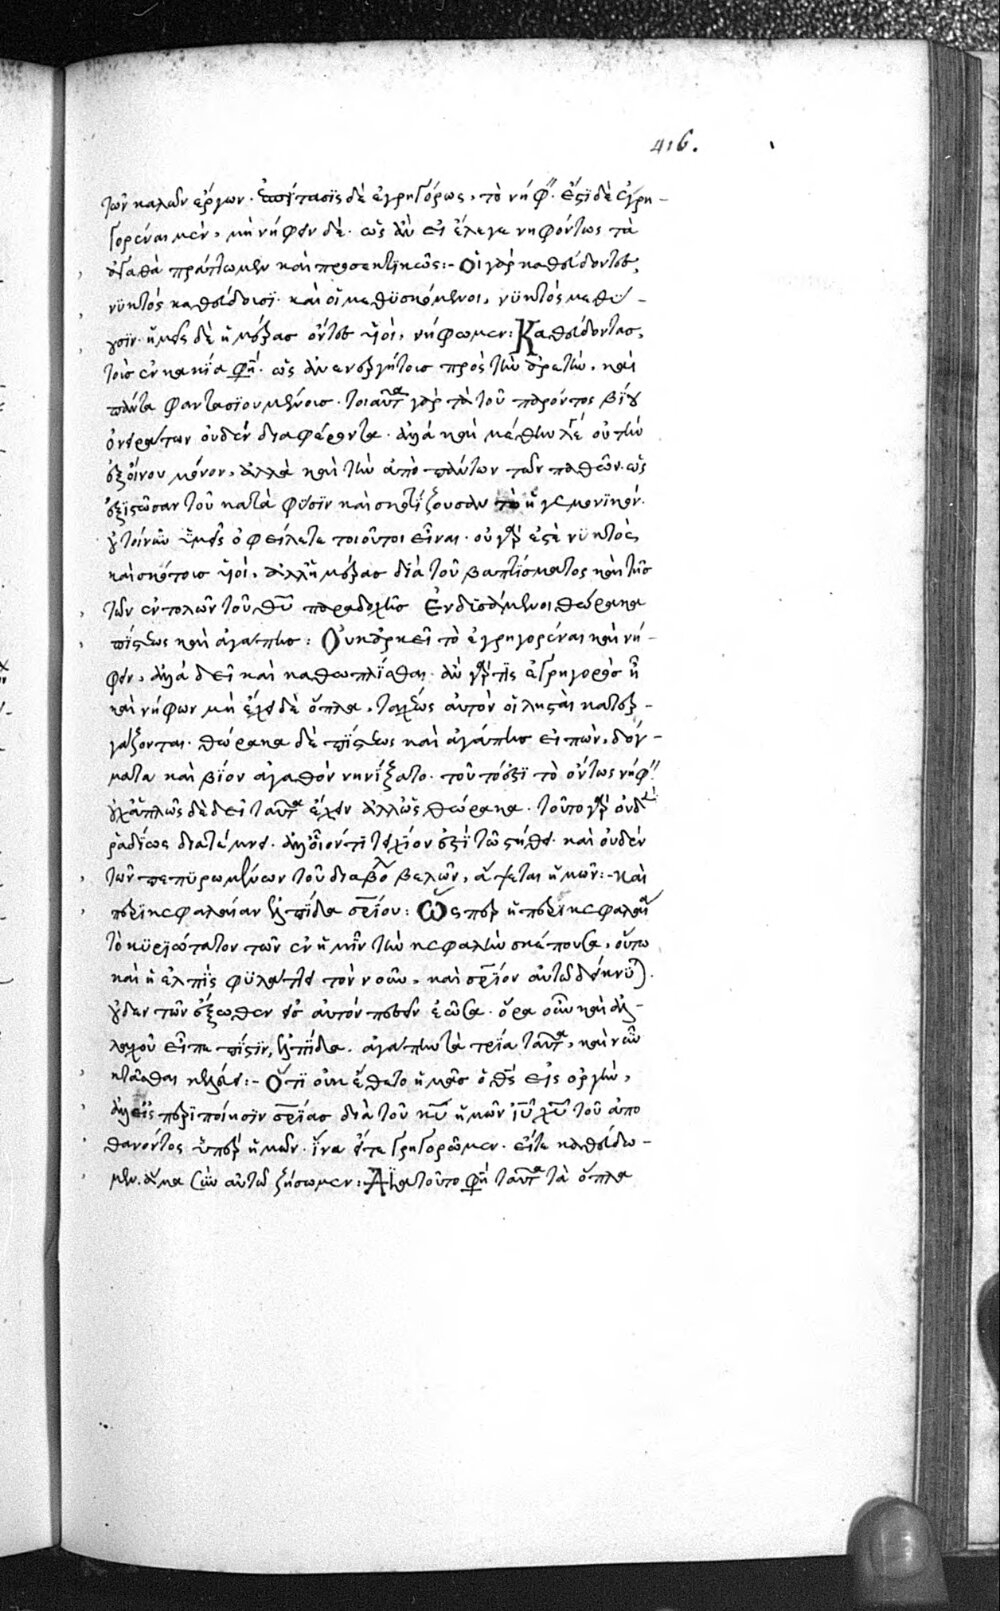 416.
τῶν καλῶν ἔργων. ἐπίτασϊς δὲ ἐγρηγόρσεως, τὸ νήφειν. ἔϛι δὲ ἐγρη-
γορέναι μὲν, μὴ νήφειν δέ. ὡς ἂν εἰ ἔλεγε νηφόντως τὰ
ἀγαθὰ πράττωμεν καὶ προσεκτϊκῶς:- Οἱ γὰρ καθεύδοντες,
νϋκτὸς καθεύδουσϊ. καὶ οἱ μεθϋσκόμενοι, νϋκτὸς μεθύ-
ουσϊν. ἡμεῖς δὲ ἡμέρας ὄντες υἱοὶ, νήφωμεν: Καθεύδοντας,
τοὺς ἐν κακία φη. ὡς ἀνενεργήτους πρὸς τὴν ἀρετὴν, καὶ
πάντα φαντασϊουμένους. τοιαῦτα γὰρ τὰ τοῦ παρόντος βίου
ὀνειράτων οὐδὲν διαφέροντα. ἀλλὰ καὶ μέθην λέγει οὐ τὴν
ἐξ οἴνου μόνον, ἀλλὰ καὶ τὴν ἀπὸ πάντων τῶν παθῶν. ὡς
ἐξϊϛῶσαν τοῦ κατὰ φύσϊν καὶ σκοτίζουσαν τὸ ἡγεμονϊκόν.
οὐ τοίνυν ὑμεῖς ὀφείλετε τοιοῦτοι εἶναι. οὐ γάρ ἐϛε νϋκτὸς,
καὶ σκότους υἱοὶ, ἀλλ' ἡμέρας διὰ τοῦ βαπτίσματος καὶ τῆς
τῶν ἐντολῶν τοῦ θυ παραδοχῆς Ἐνδϋσάμενοι θώρακα
πίϛεως καὶ ἀγάπης: Οὐκ ἀρκεῖ τὸ ἐγρηγορέναι καὶ νή-
φειν, ἀλλὰ δεῖ καὶ καθωπλίσθαι. ἂν γάρ τϊς ἐγρηγορὼς ἦ
καὶ νήφων μὴ ἔχει δὲ ὅπλα, ταχέως αὐτὸν οἱ λῃϛαὶ κατερ-
γάζονται. θώρακα δὲ πίϛεως καὶ ἀγάπης εἰπὼν, δόγ-
ματα καὶ βίον ἀγαθὸν ᾐνίξατο. τοῦτό ἐϛϊ τὸ ὄντως νήφειν
οὐχ ἁπλῶς δὲ δεῖ ταῦτα ἔχειν ἀλλ' ὡς θώρακα. τοῦτο γὰρ οὐδεὶς
ῥαδίως διατέμνει. ἀλλ' οἱονεί τι τειχίον ἐπὶ τῶ ϛήθει. καὶ οὐδὲν
τῶν πεπϋρωμένων τοῦ διαβο βελῶν, ἅψεται ἡμῶν:- Καὶ
περϊκεφαλαίαν ἐλπίδα σρίου: Ὥσπερ ἡ περϊκεφαλαία
τὸ κϋρϊώτατον τῶν ἐν ἡμῖν τὴν κεφαλὴν σκέπουσα, οὕτω
καὶ ἡ ἐλπὶς φϋλάττει τὸν νοῦν, καὶ σρίον αὐτῶ δείκνυσι.
οὐδὲν τῶν ἔξωθεν εἰς αὐτὸν πεσεῖν ἐῶσα. ὅρα οὖν καὶ ἀλ-
λαχοῦ εἶπε πίϛϊν, ἐλπίδα, ἀγάπην τὰ τρία ταῦτα, καὶ νῦν
κτᾶσθαι κελεύει:- Ὅτϊ οὐκ ἔθετο ἡμᾶς ὁ θς εἰς ὀργὴν,
ἀλλ' εἰς περϊποίησϊν σρίας διὰ τοῦ κυ ἡμῶν ιυ χυ τοῦ ἀπο
θανόντος ὑπὲρ ἡμῶν. ἵνα εἴτε γρηγορῶμεν. εἴτε καθεύδω-
μεν. ἅμα σὺν αὐτῶ ζήσωμεν: Διατοῦτο φη ταῦτα τὰ ὅπλα